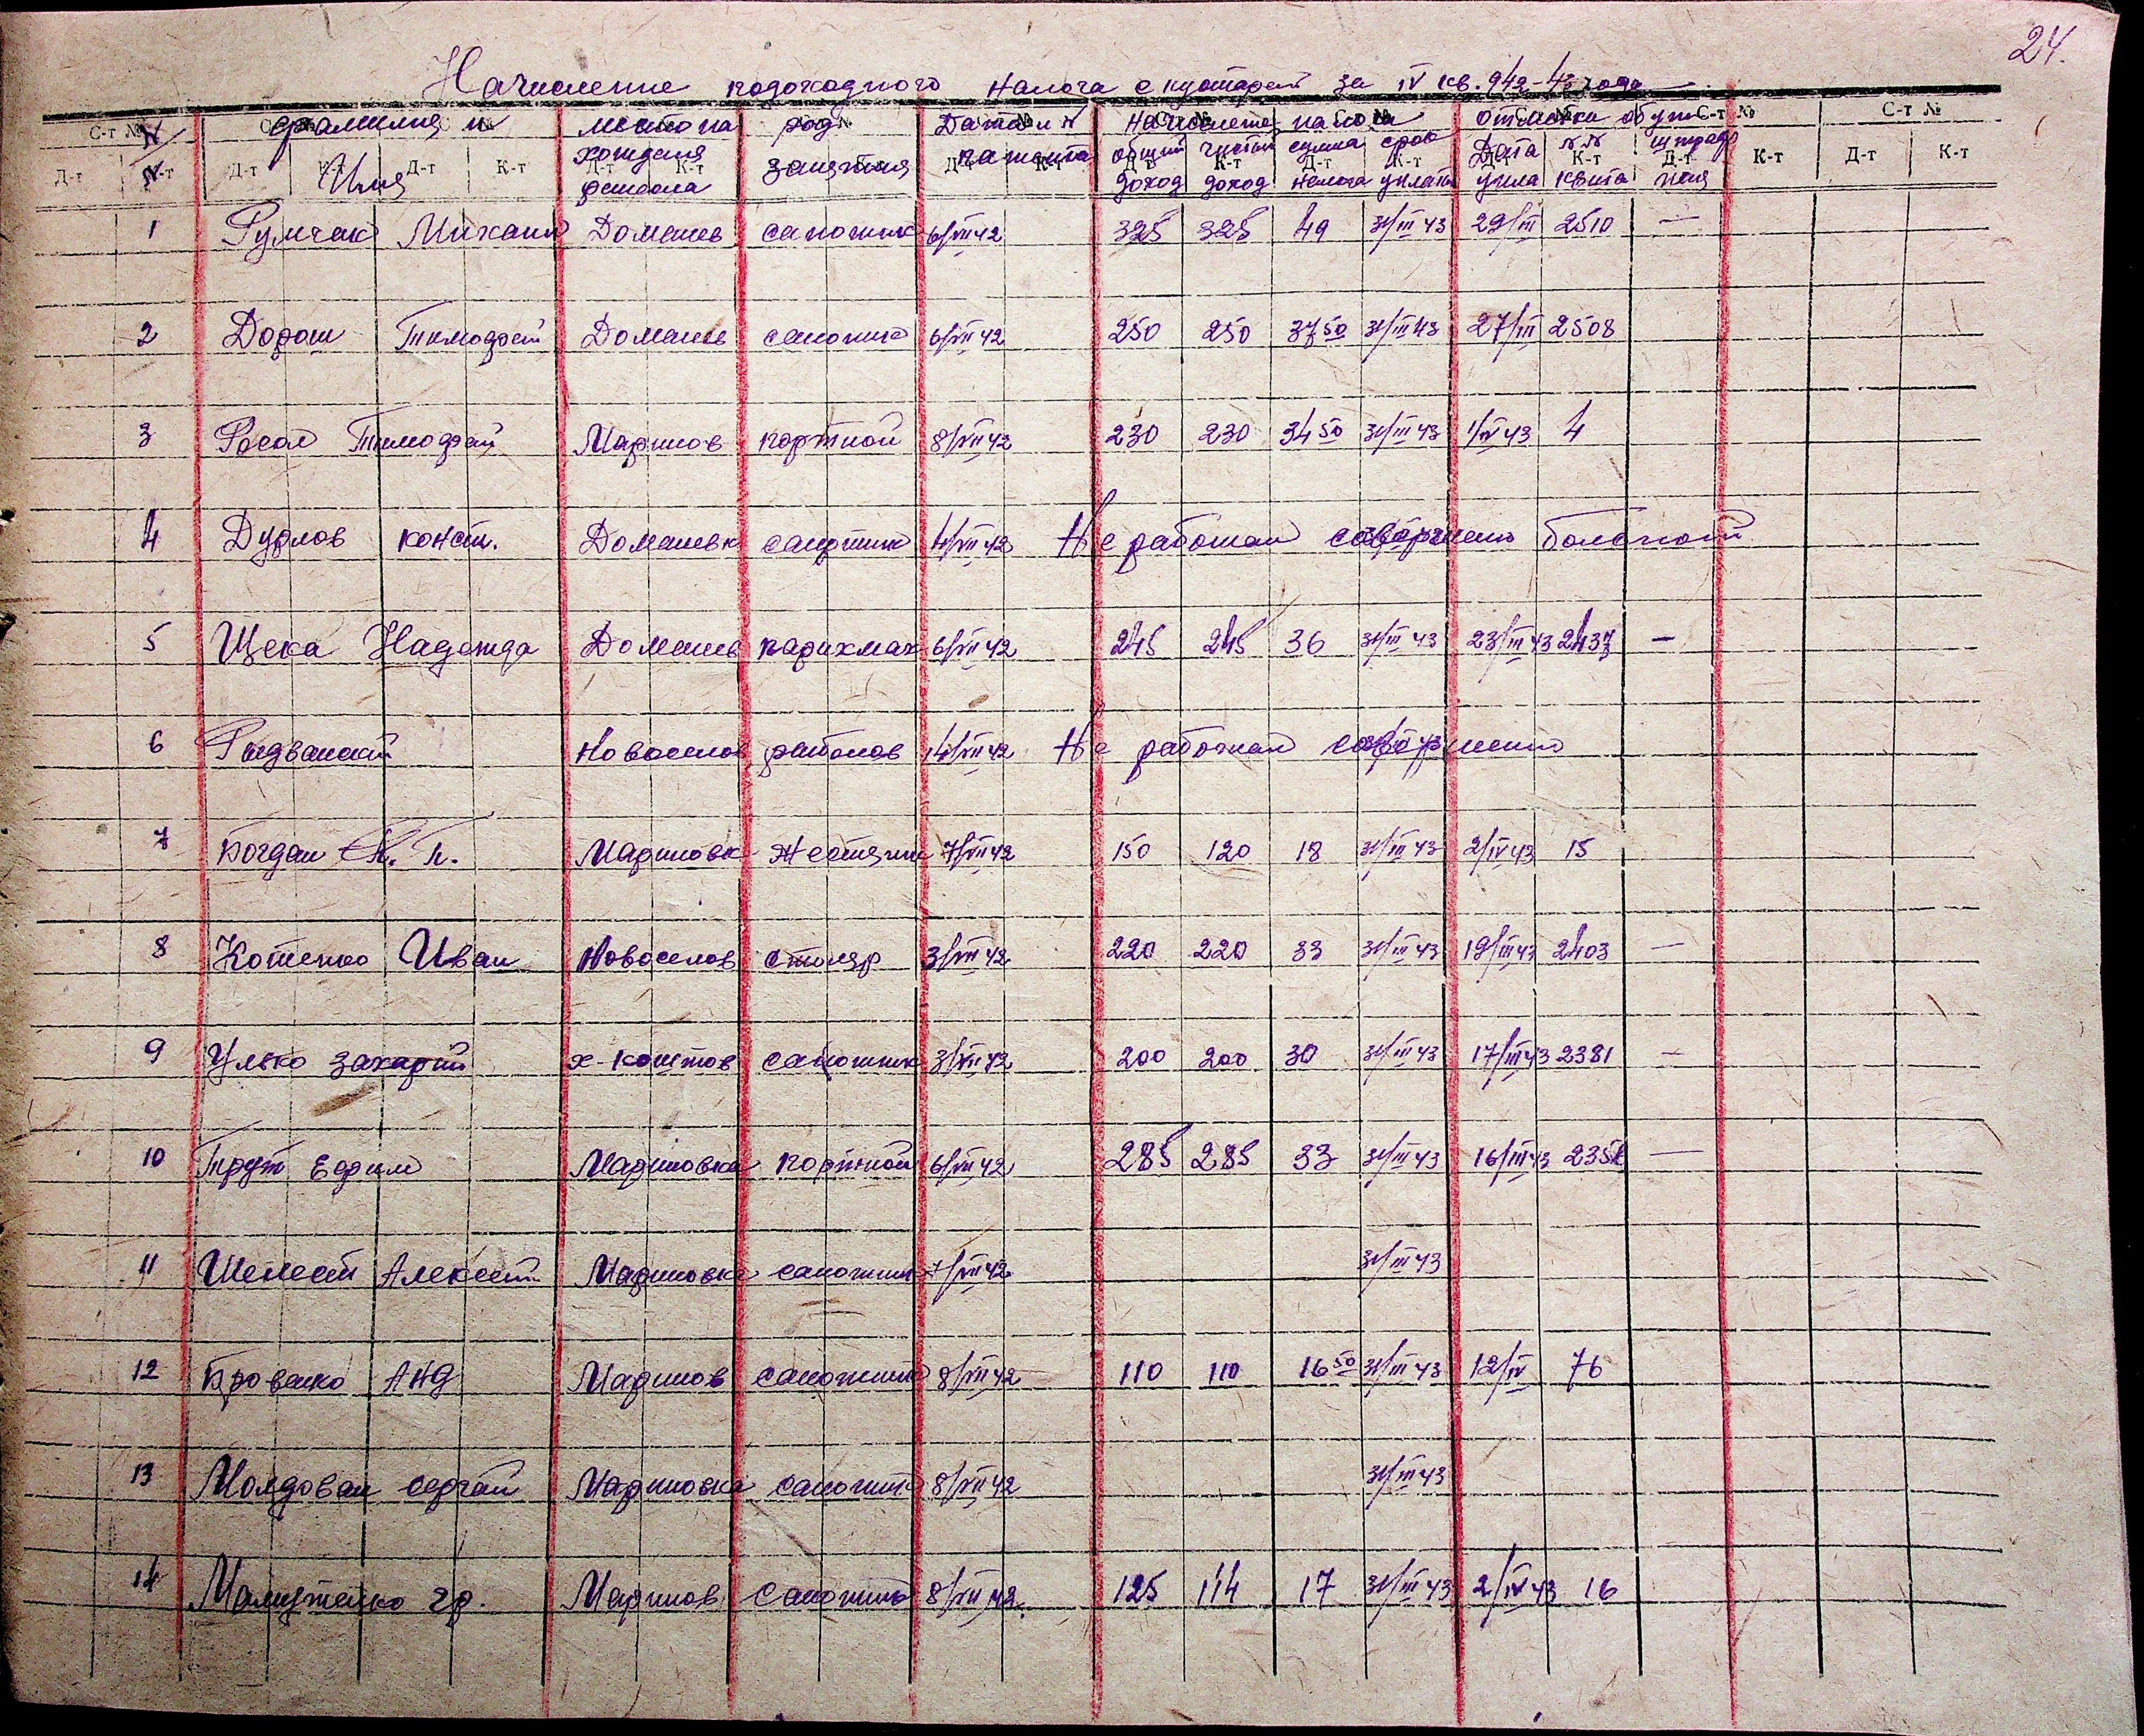 24.
Начисление подоходного налога с кустарей за IV кв. 942-43 года
С-т № С-т № С-т № С-т № С-т № С-т №
N/N фамилия и Имя место нахождения ремесла род занятия Дата и № патента Начисление налога отметка об упл
общий доход чистый доход сумма налога срок уплаты Дата упла №№ квита штраф пеня
Д-т К-т Д-т К-т Д-т К-т Д-т К-т Д-т К-т Д-т К-т Д-т К-т Д-т К-т Д-т К-т Д-т К-т
1 Румчак Михаил Доманев сапожник 6/VII 42 325 325 49 31/III 43 29/III 2510 —
2 Дорош Тимофей Доманев сапожник 6/VII 42 250 250 37 50 31/III 43 27/III 2508
3 Росол Тимофей Маринов портной 8/VII 42 230 230 34 50 31/III 43 1/IV 43 4
4 Дурлов конст. Доманевк сапожник 4/VII 42 Не работал совершенно больной
5 Щека Надежда Доманев парихмах 6/VII 42 245 245 36 31/III 43 23/III 43 2437 —
6 Рыдванский Новоселов рыболов 14/VII 42 Не работал совершенно
7 Богдан П. Мариновк Жестянн 7/VII 42 150 120 18 31/III 43 2/IV 43 15
8 Котенко Иван Новоселов столяр 3/VII 42 220 220 33 31/III 43 19/III 43 2403 —
9 Улько Захарий х-коштов сапожник 3/VII 42 200 200 30 31/III 43 17/III 43 2381 —
10 Прут Ефрим Мариновка портной 6/VII 42 285 285 33 31/III 43 16/III 43 —
11 Шелест Алексей Мариновка сапожник 7/VII 42 31/III 43
12 Бровенко АНД Маринов сапожник 8/VII 42 110 110 16 50 31/III 43 12/IV 76
13 Молдован сергей Мариновка сапожник 8/VII 42 31/III 43
14 гр. Маринов Сапожник 8/VII 42 125 114 17 31/III 43 2/IV 43 16